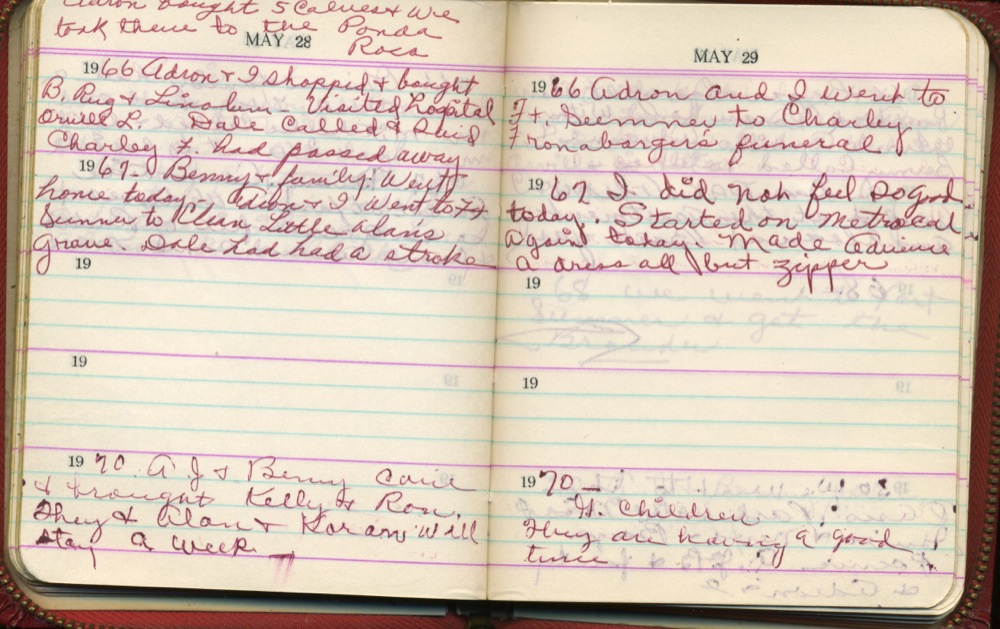 Adron bought 5 Calves & We
took there to the Ponda
Rosa
MAY 28
1966 Adron & I shopped & bought
B. Rug & Linolum Visited hospital
Orville L. Dale Called & Said
Charley F. had passed away
1967- Benny & family Went
home today - Adron & I Went to Ft
Sumner to Clean Little Alans
Grave. Dale had had a stroke
19
19
1970 A J & Benny came
& brought Kelly & Ron.
They & Alan & Karann Will
stay a week
MAY 29
1966 Adron and I went to
Ft. Sumner to Charley
Fronabarger's funeral
1967 I did not feel so good
today. Started on Metrecal
again today. Made
a dress all but zipper
19
19
1970 -
G. Children
They are having a good
time